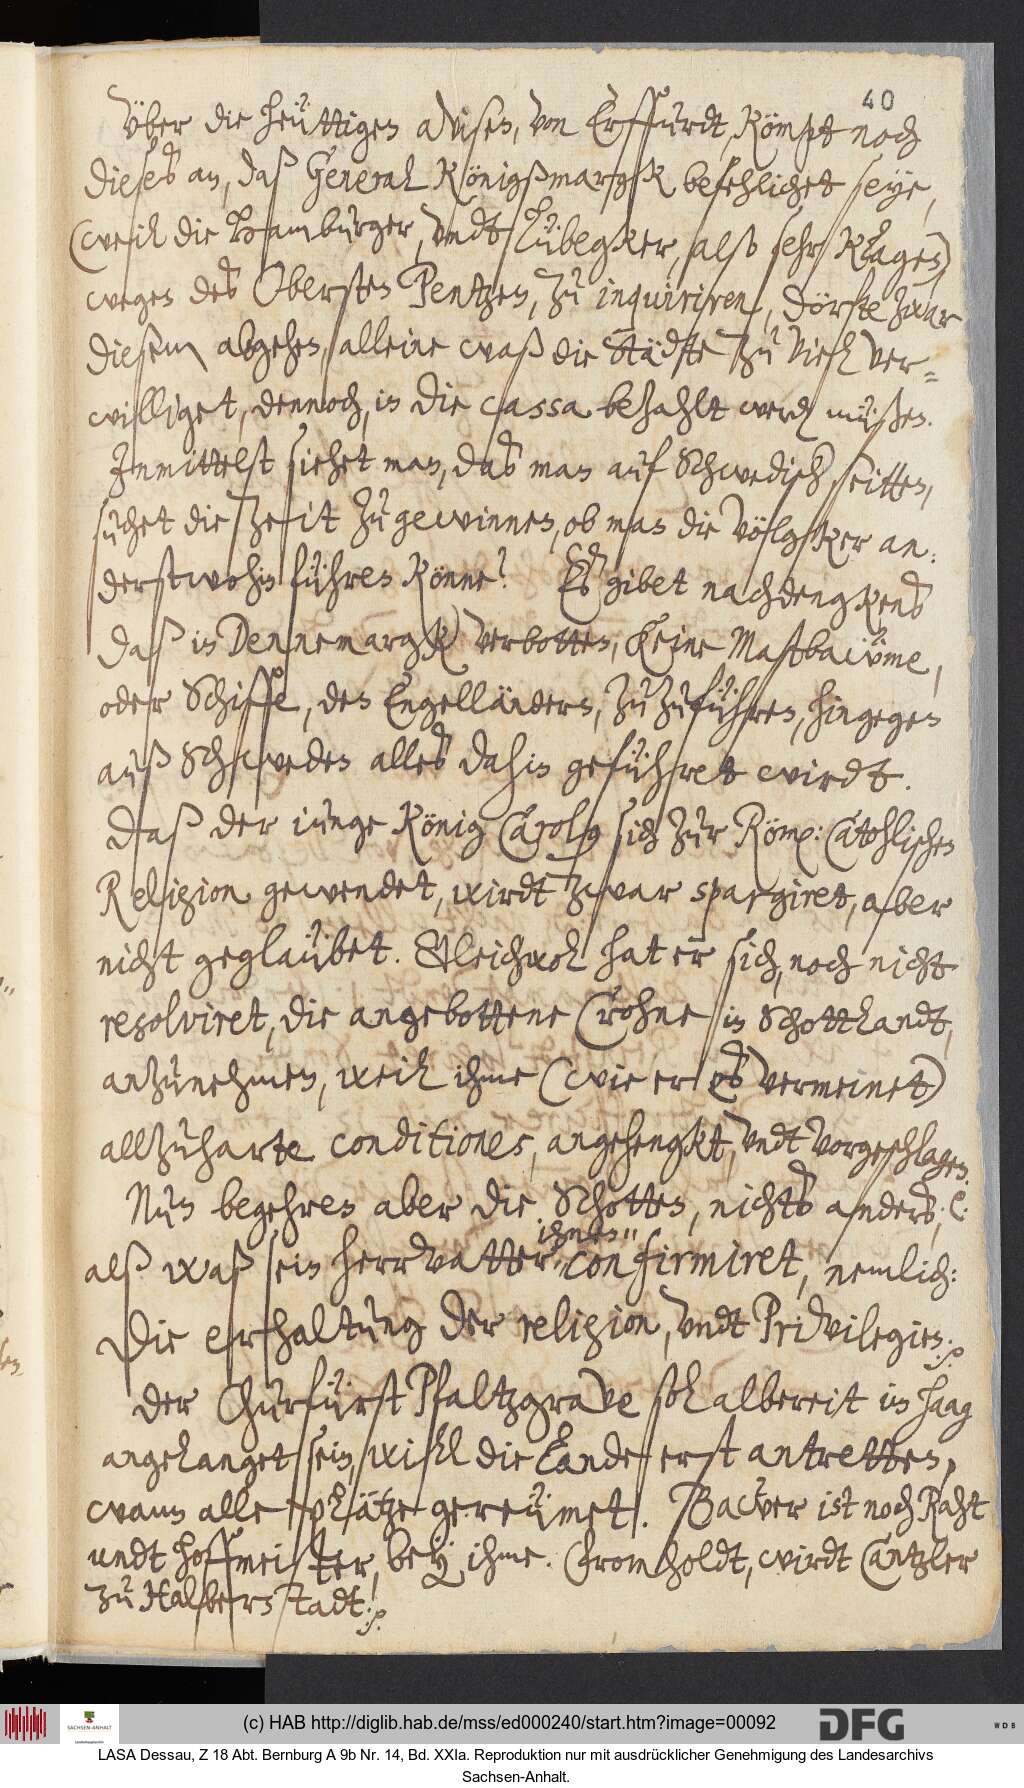 40
Vber die heüttigen avisen, von Erffurdt, kömpt noch
dieses an, daß General Königßmargk befehlichet seye,
(weil die Hamburger, vndt Lübegker, also sehr klagen)
wegen des Obersten Pentzen, zu inquiriren, dörfte zwar
diesem abgehen, alleine waß die Städte zu viel ver-
williget, dennoch, in die cassa bezahlt werden müßen.
Inmittelst siehet man, das man auf Schwedisch seitten,
suchet die zeit zu gewinnen, ob man die völgker an-
derstwohin führen könne? Es gibet nachdengkens
daß in Dennemargk verbotten, keine Mastbaüme,
oder Schiffe, den Engelländern, zuzuführen, hingegen
auß Schweden alles dahin geführet wirdt.
Daß der iunge König Carolus sich zur Römischen Catohlischen
Religion gewendet, wirdt zwar spargiret, aber
nicht geglaübet. Gleichwol hat er sich, noch nicht
resolviret, die angebottene Crohne in Schottlandt,
anzunehmen, weil ihme (wie er es vermeinet)
allzuharte conditiones, angehengkt, vndt vorgeschlagen.
Nun begehren aber die Schotten, nichts anders,
alß waß sein herrvatter, ihnen" confirmiret, nemlich:
Die erhaltung der religion, vndt Privilegien.
der Churfürst Pfaltzgrave sol albereit im Haag
angelanget sein, will die Lande erst antretten,
wann alle plätze gereümet. Bawer ist noch Raht
undt hoffmeister, bey ihme. Cromholdt, wirdt Cantzler
zu Halberstadt.
(c) HAB http://diglib.hab.de/mss/ed000240/start.htm?image=00092
SACHSEN-ANHALT
DFG
WDB
LASA Dessau, Z 18 Abt. Bernburg A 9b Nr. 14, Bd. XXIa. Reproduktion nur mit ausdrücklicher Genehmigung des Landesarchivs
Sachsen-Anhalt.